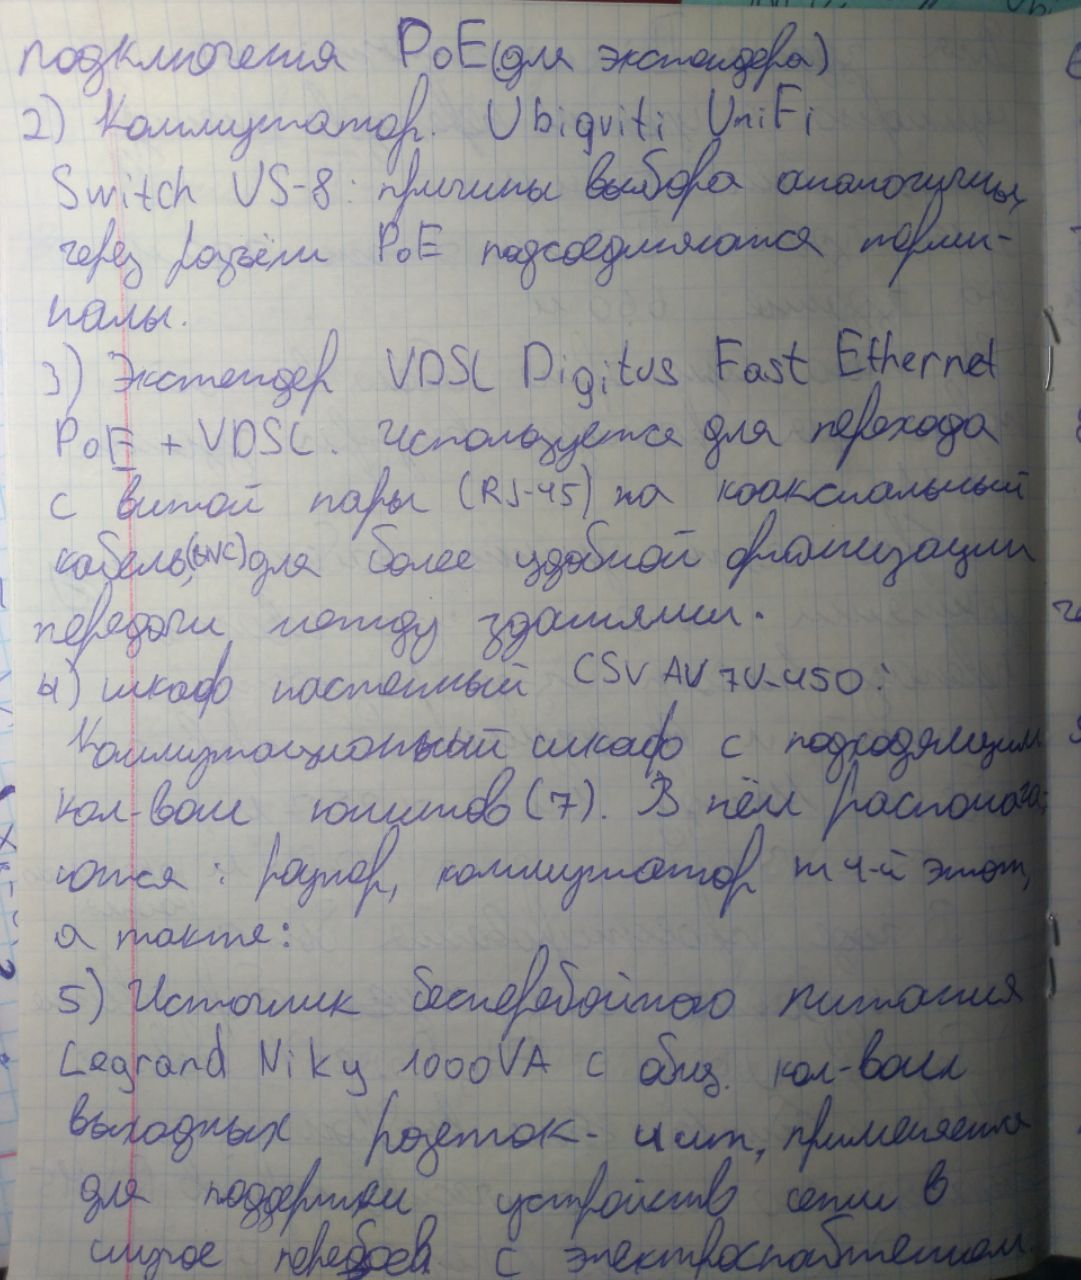 подключения PoE(для экстендера)
2) Коммутатор. Ubiquiti UniFi
Switch US-8: причины выбора аналогичны,
через разъём PoE подсоединяются терми-
налы.
3) Экстендер VDSL Digitus Fast Ethernet
PoE + VDSL. Используется для перехода
с витой пары (RJ-45) на коаксиальный
кабель(BNC)для более удобной организации
передачи между зданиями.
4) шкаф настенный CSV AV 7U-450:
Коммутационный шкаф с подходящим
кол-вом юнитов(7). В нём распола
ются: роутер, коммутатор 4-й этаж,
а также:
5) Источник бесперебойного питания
Legrand Niky 1000VA с общ. кол-вом
выходных розеток- 4шт, применяется
для поддержки устройств сети в
случае перебоев с электроснабжением.